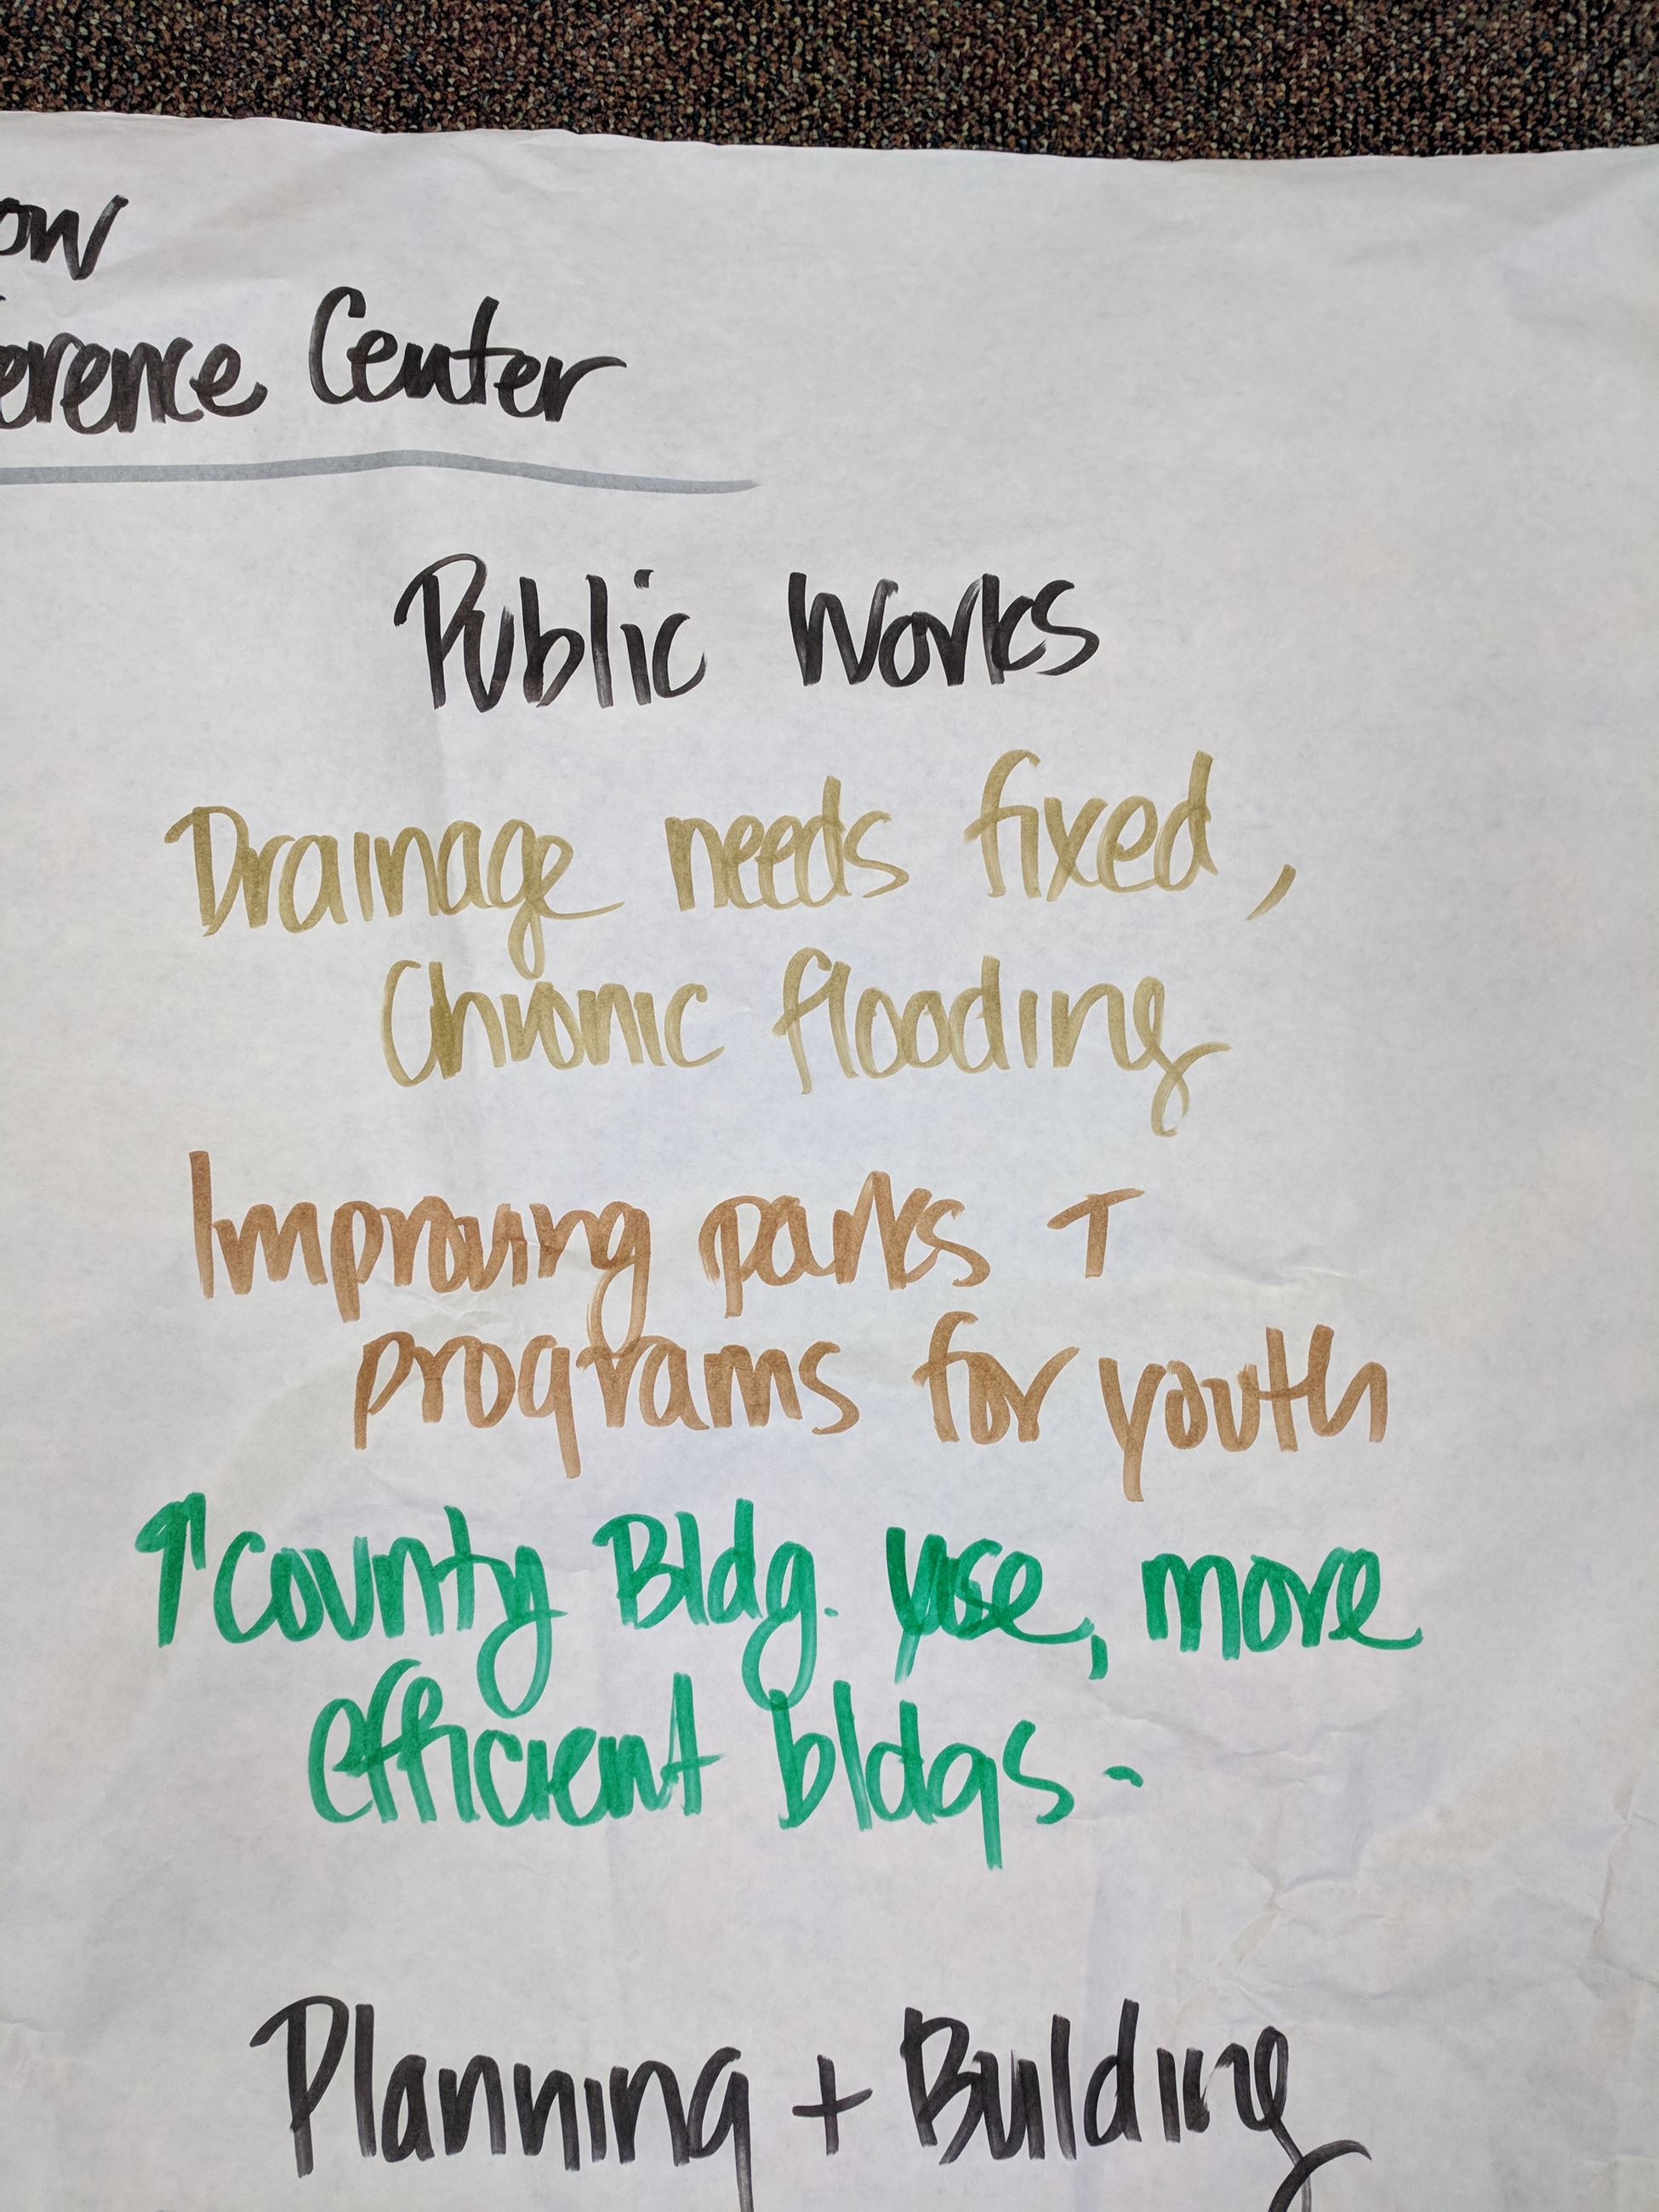 ow
erence Center
Public Works
Drainage needs fixed,
Chronic flooding
Improving parks +
programs for youth
↑ County Bldg. use, more
efficient bldgs-
Planning + Building